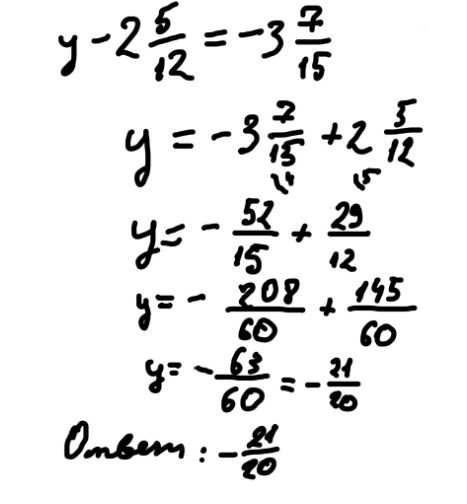 y - 2 5/12 = -3 7/15
y = -3 7/15 + 2 5/12
\4 \5
y = - 52/15 + 29/12
y = - 208/60 + 145/60
y = - 63/60 = - 21/20
Ответ: - 21/20